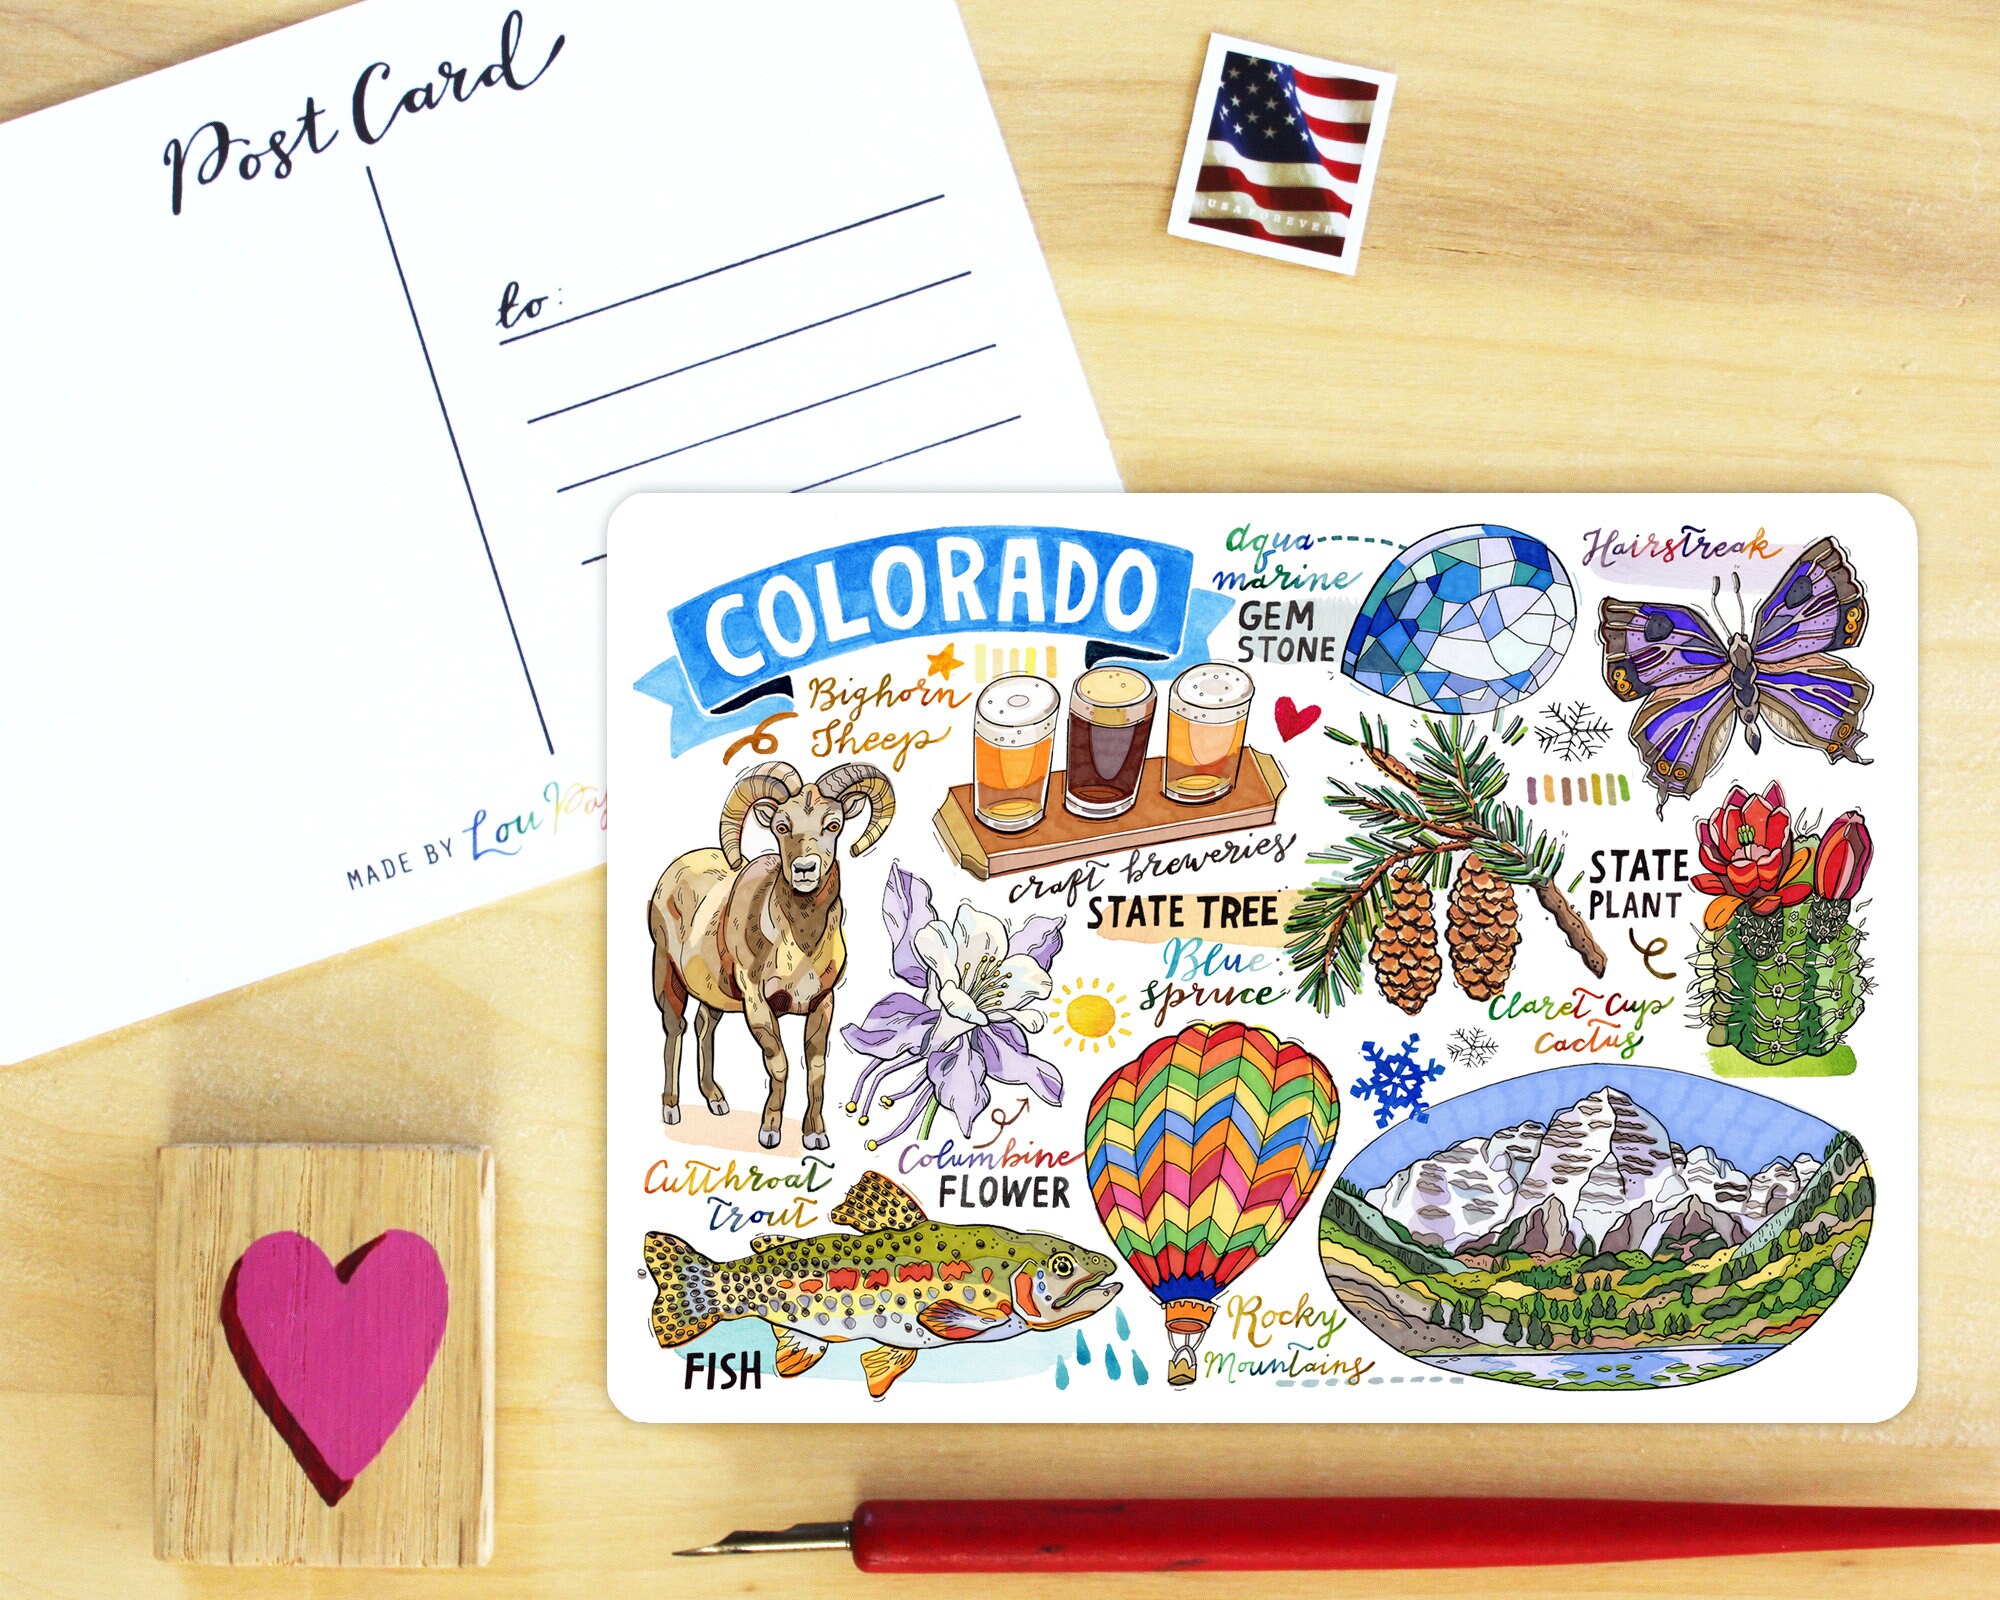 Post Card
to:
MADE BY Lou
USA FOREVER
COLORADO
aqua
marine
GEM
STONE
Hairstreak
Bighorn
Sheep
craft breweries
STATE TREE
Blue
Spruce
STATE
PLANT
Claret Cup
Cactus
Columbine
FLOWER
Cutthroat
Trout
FISH
Rocky
Mountains